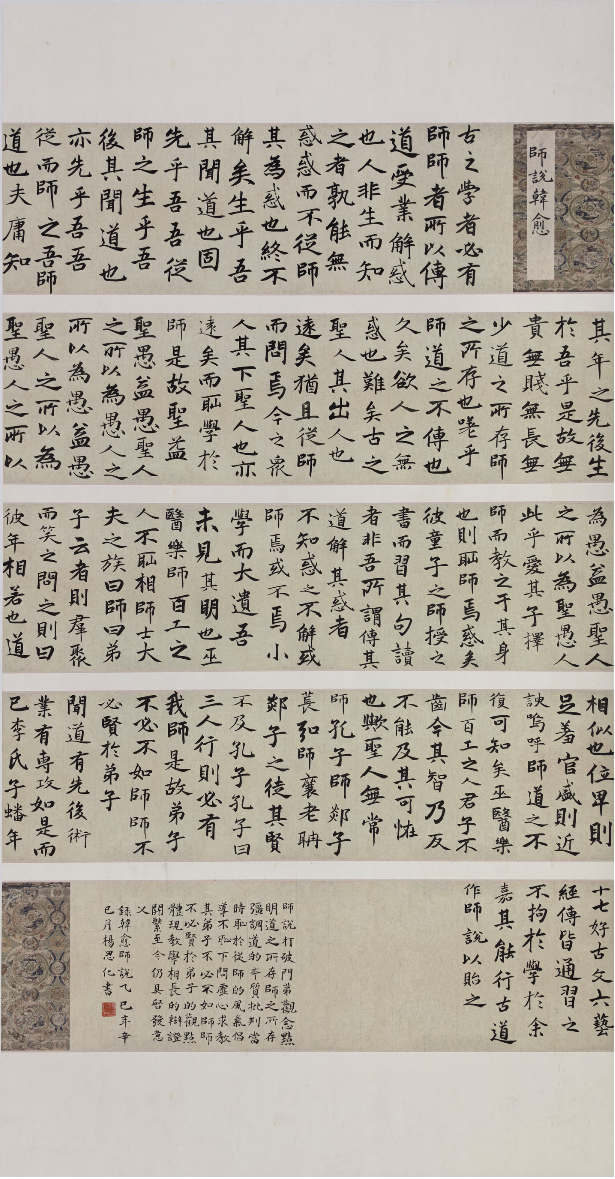 師說韓愈
古之學者必有
師師者所以傳
道受業解惑
也人非生而知
之者孰能無
惑惑而不從師
其為惑也終不
解矣生乎吾
其聞道也固
先乎吾吾從
師之生乎吾
後其聞道也
亦先乎吾吾
從而師之吾師
道也夫庸知
其年之先後生
於吾乎是故無
貴無賤無長無
少道之所存師
之所存也嗟乎
師道之不傳也
久矣欲人之無
惑也難矣古之
聖人其出人也
遠矣猶且從師
而問焉今之衆
人其下聖人也亦
遠矣而恥學於
師是故聖益
聖愚益愚聖人
之所以為愚人之
所以為愚益愚
聖人之所以為
聖愚人之所以
為愚益愚聖人
之所以為聖愚人
此乎愛其子擇
師而教之于其身
也則恥師焉惑矣
彼童子之師授之
書而習其句讀
者非吾所謂傳其
道解其惑者
不知惑之不解或
師焉或不焉小
學而大遺吾
未見其明也巫
醫樂師百工之
人不恥相師士大
夫之族曰師曰弟
子云者則羣聚
而笑之問之則曰
彼年相若也道
相似也位卑則
足羞官盛則近
諛嗚呼師道之不
復可知矣巫醫樂
師百工之人君子不
齒今其智乃反
不能及其可怪
也歟聖人無常
師孔子師郯子
萇弘師襄老聃
郯子之徒其賢
不及孔子孔子曰
三人行則必有
我師是故弟子
不必不如師師不
必賢於弟子
聞道有先後術
業有專攻如是而
已李氏子蟠年
十七好古文六藝
經傳皆通習之
不拘於學於余
嘉其能行古道
作師說以貽之
師說打破門第觀念點
明道之所存師之所存
強調道的本質批判當
時恥於從師的風氣倡
導不恥下問虛心求教
其弟子不必不如師師
不必賢於弟子的觀點
體現教學相長的辯證
關繫至今仍具啓發意
义
錄韓愈師說乙巳年辛
巳月楊思化書